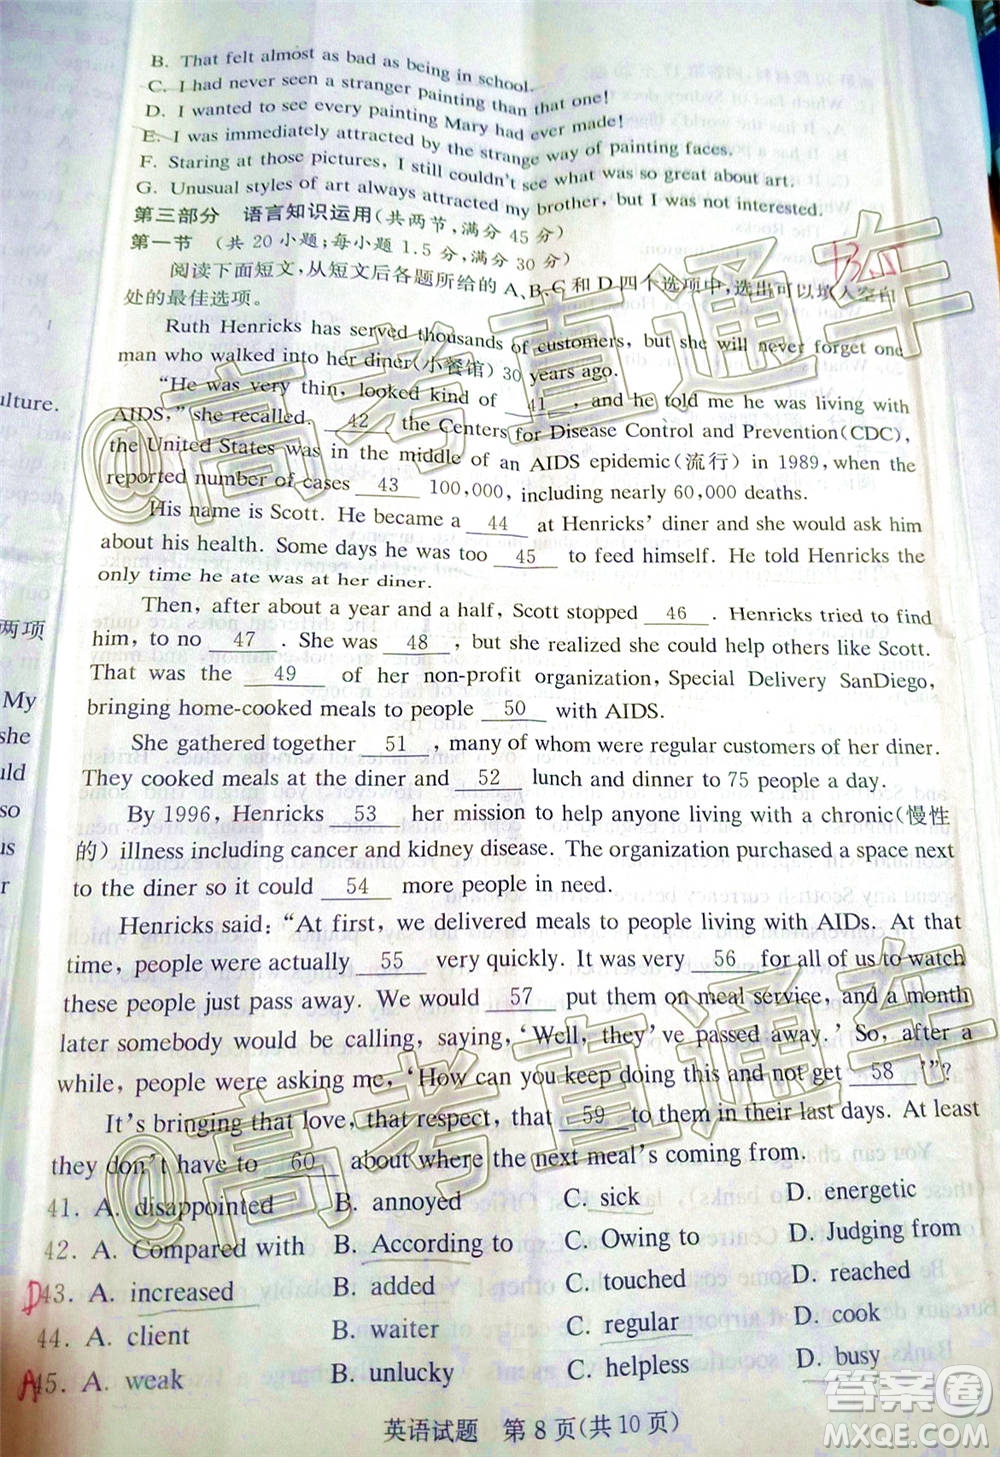 B. That felt almost as bad as being in school.
C. I had never seen a stranger painting than that one!
D. I wanted to see every painting Mary had ever made!
E. I was immediately attracted by the strange way of painting faces.
F. Staring at those pictures, I still couldn't see what was so great about art.
G. Unusual styles of art always attracted my brother, but I was not interested.
第三部分 语言知识运用(共两节,满分 45 分)
第一节 (共 20 小题;每小题 1.5 分,满分 30 分)
阅读下面短文,从短文后各题所给的 A、B、C 和 D 四个选项中,选出可以填入空白
处的最佳选项。
Ruth Henricks has served thousands of customers, but she will never forget one
man who walked into her diner(小餐馆) 30 years ago.
"He was very thin, looked kind of 41 , and he told me he was living with
AIDS," she recalled. 42 the Centers for Disease Control and Prevention(CDC),
the United States was in the middle of an AIDS epidemic(流行) in 1989, when the
reported number of cases 43 100,000, including nearly 60,000 deaths.
His name is Scott. He became a 44 at Henricks' diner and she would ask him
about his health. Some days he was too 45 to feed himself. He told Henricks the
only time he ate was at her diner.
Then, after about a year and a half, Scott stopped 46 . Henricks tried to find
him, to no 47 . She was 48 , but she realized she could help others like Scott.
That was the 49 of her non-profit organization, Special Delivery SanDiego,
bringing home-cooked meals to people 50 with AIDS.
She gathered together 51 , many of whom were regular customers of her diner.
They cooked meals at the diner and 52 lunch and dinner to 75 people a day.
By 1996, Henricks 53 her mission to help anyone living with a chronic(慢性
的) illness including cancer and kidney disease. The organization purchased a space next
to the diner so it could 54 more people in need.
Henricks said: "At first, we delivered meals to people living with AIDs. At that
time, people were actually 55 very quickly. It was very 56 for all of us to watch
these people just pass away. We would 57 put them on meal service, and a month
later somebody would be calling, saying, 'Well, they've passed away.' So, after a
while, people were asking me, 'How can you keep doing this and not get 58 '"?
It's bringing that love, that respect, that 59 to them in their last days. At least
they don't have to 60 about where the next meal's coming from.
41. A. disappointed B. annoyed C. sick D. energetic
42. A. Compared with B. According to C. Owing to D. Judging from
D 43. A. increased B. added C. touched D. reached
44. A. client B. waiter C. regular D. cook
A 45. A. weak B. unlucky C. helpless D. busy
英语试题 第 8 页(共 10 页)
@高考直通车
@高考直通车
答案卷
MXQE.COM
ulture.
两项
My
she
uld
so
us
r